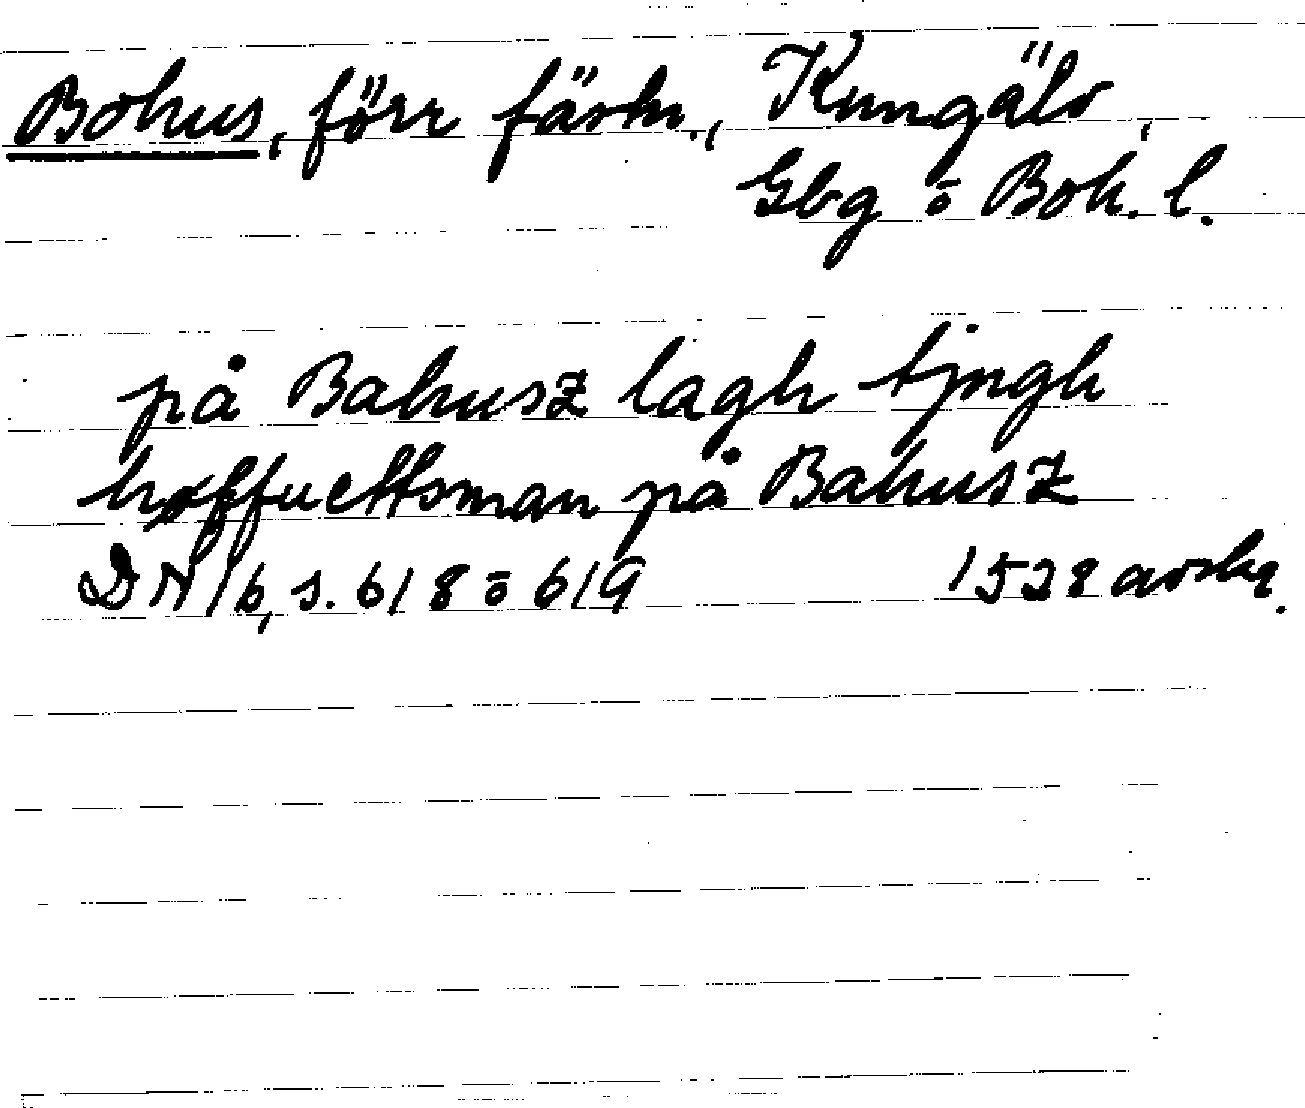 Bohus, förr fästn., Kungälv,
Gbg o Boh. l.
på Bahusz lagh tjngh
høffuettsman på Bahusz
DN 16, s. 618 o 619 1528 avskr.